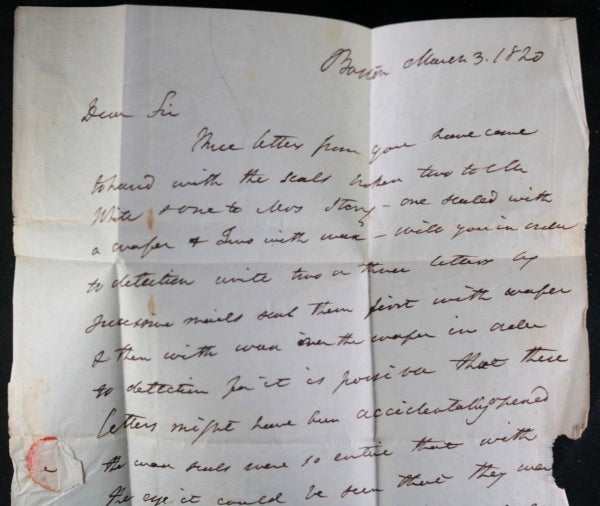 Boston March 3. 1820
Dear Sir
Three letters from you have come
to hand with the seals broken two to Mr
White & one to Mrs Story - one sealed with
a wafer & Two with wax - will you in order
to detection write two or three letters by
successive mails seal them first with wafer
& then with wax over the wafer in order
to detection for it is possible that these
letters might have been accidentally opened
the wax seals were so entire that with
the eye it could be seen that they were